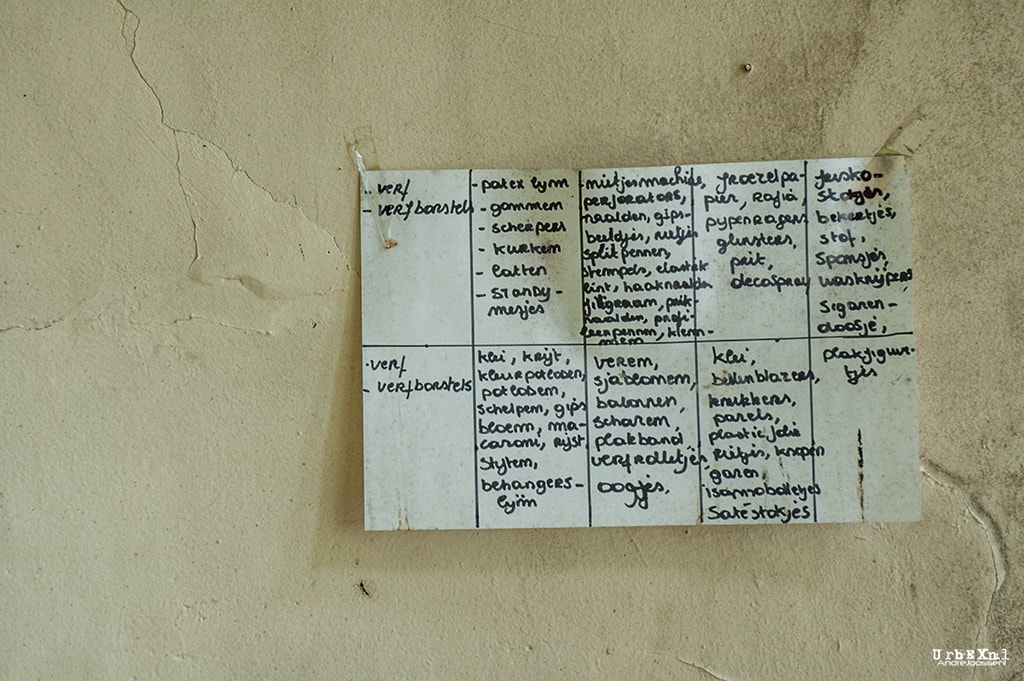 - verf
- verfborstels
- patex lijm
- gommen
- scherpers
- kurken
- latten
- standy-
mesjes
- nietjesmachine,
perforators,
naalden, gips-
beeldjes, rietjes
splitpennen,
stempels, elastiek
lint, haaknaalden
filigraam, prik-
naalden, profi-
leerpennen, klem-
froezelpa-
pier, rafia,
pypenragers
glinsters,
prit,
decospray
stokjes,
bekertjes,
stof,
sponsjes,
wasknijpers
sigaren-
doosje,
- verf
- verfborstels
klei, krijt,
kleurpotloden,
potloden,
schelpen, gips
bloem, ma-
caroni, rijst,
stijten,
behangers-
lijm
veren,
sjablomen,
balonnen,
scharen,
plakband
verfrolletjes
oogjes,
klei,
bellenblazers,
knikkers,
parels,
plastic folie
rietjes, knopen
garen,
isomobolletjes
satéstokjes
plakfiguur-
tjes
UrbEXnl
AndreJoosse.nl